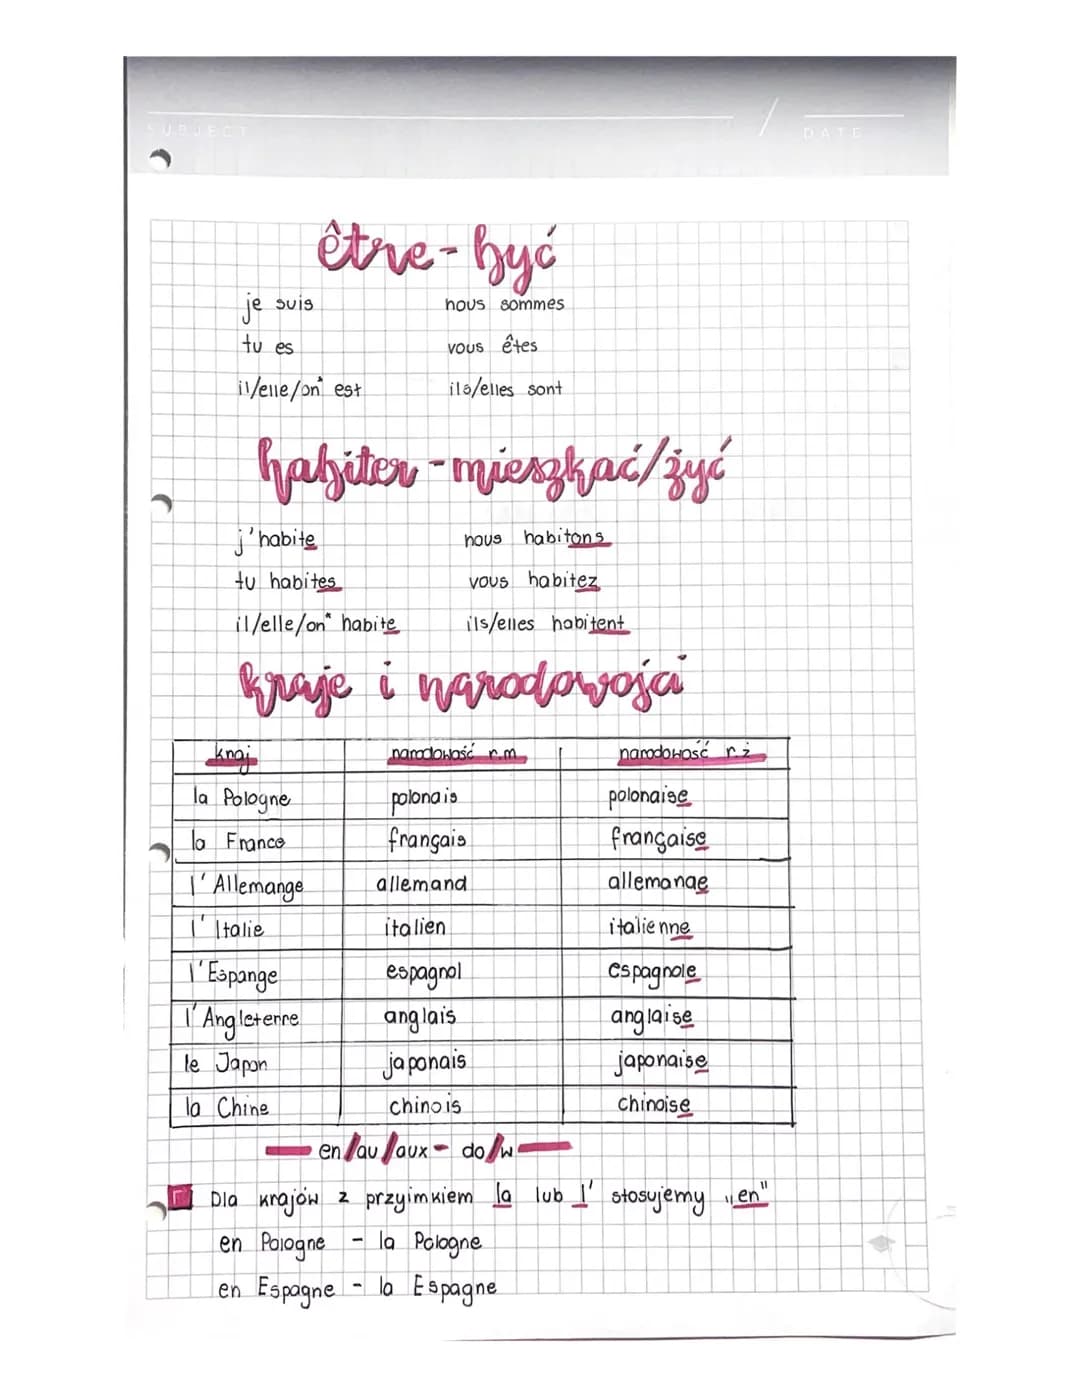 SUBJECT / DATE
être - być
je suis nous sommes
tu es vous êtes
il/elle/on* est ils/elles sont
habiter - mieszkać/żyć
j'habite nous habitons
tu habites vous habitez
il/elle/on* habite ils/elles habitent
kraje i narodowości
kraj narodowość r.m narodowość r.ż
la Pologne polonais polonaise
la France français française
l'Allemange allemand allemange
l'Italie italien italienne
l'Espange espagnol espagnole
l'Angleterre anglais anglaise
le Japon japonais japonaise
la Chine chinois chinoise
en/au/aux - do/w
Dla krajów z przyimkiem la lub l' stosujemy „en"
en Pologne - la Pologne
en Espagne - la Espagne